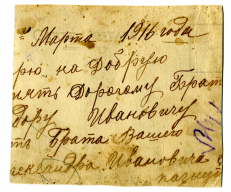 Марта 1916 года
рю на Добрую
мять Дорогому Брат
дору Ивановичу
тъ Брата Вашего
лександра Ивановича